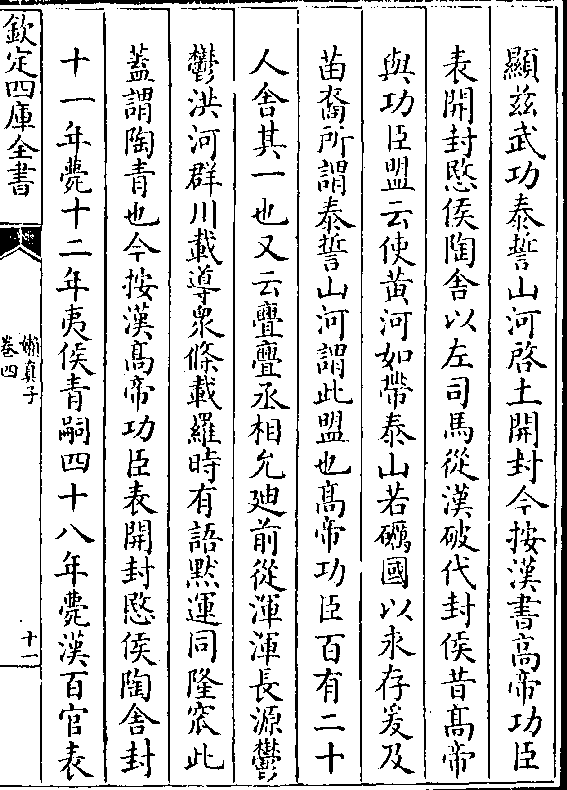 顯兹武功泰誓山河啓土開封今按漢書高帝功臣
表開封愍侯陶舍以左司馬從漢破代封侯昔髙帝
與功臣盟云使黄河如帶泰山若礪國以永存爰及
苗裔所謂泰誓山河謂此盟也髙帝功臣百有二十
人舍其一也又云亹亹丞相允廸前從渾渾長源鬱
鬱洪河群川載導衆條載羅時有語黙運同隆窊此
蓋謂陶青也今按漢髙帝功臣表開封愍侯陶舍封
十一年薨十二年夷侯青嗣四十八年薨漢百官表
欽定四庫全書
嬾真子
卷四
十一